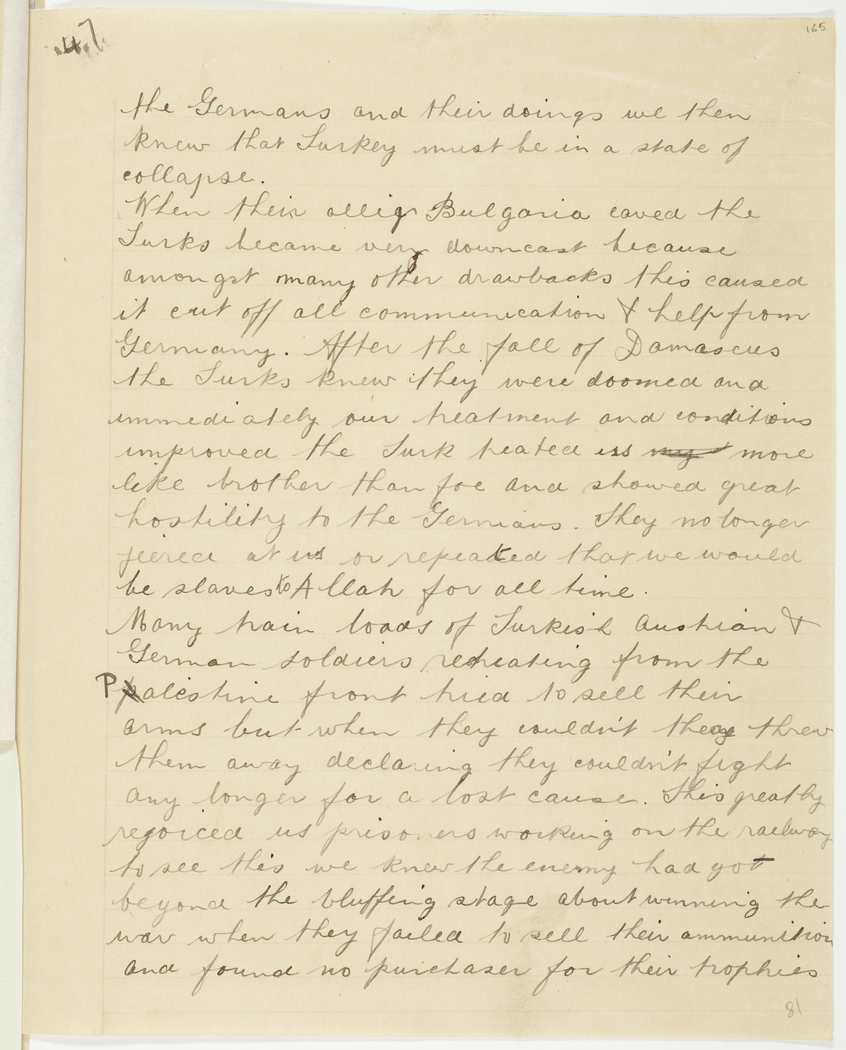 47.
165
the Germans and their doings we then
knew that Turkey must be in a state of
collapse.
When their allies Bulgaria caved the
Turks became very downcast because
amongst many other drawbacks this caused
it cut off all communication & help from
Germany. After the fall of Damascus
the Turks knew they were doomed and
immediately our treatment and conditions
improved the Turk treated us my more
like brother than foe and showed great
hostility to the Germans. They no longer
jeered at us or repeated that we would
be slaves to Allah for all time.
Many train loads of Turkish Austrian &
German soldiers retreating from the
Palestine front tried to sell their
arms but when they couldn't they threw
them away declaring they couldn't fight
any longer for a lost cause. This greatly
rejoiced us prisoners working on the railway
to see this we knew the enemy had got
beyond the bluffing stage about winning the
war when they failed to sell their ammunition
and found no purchaser for their trophies
81